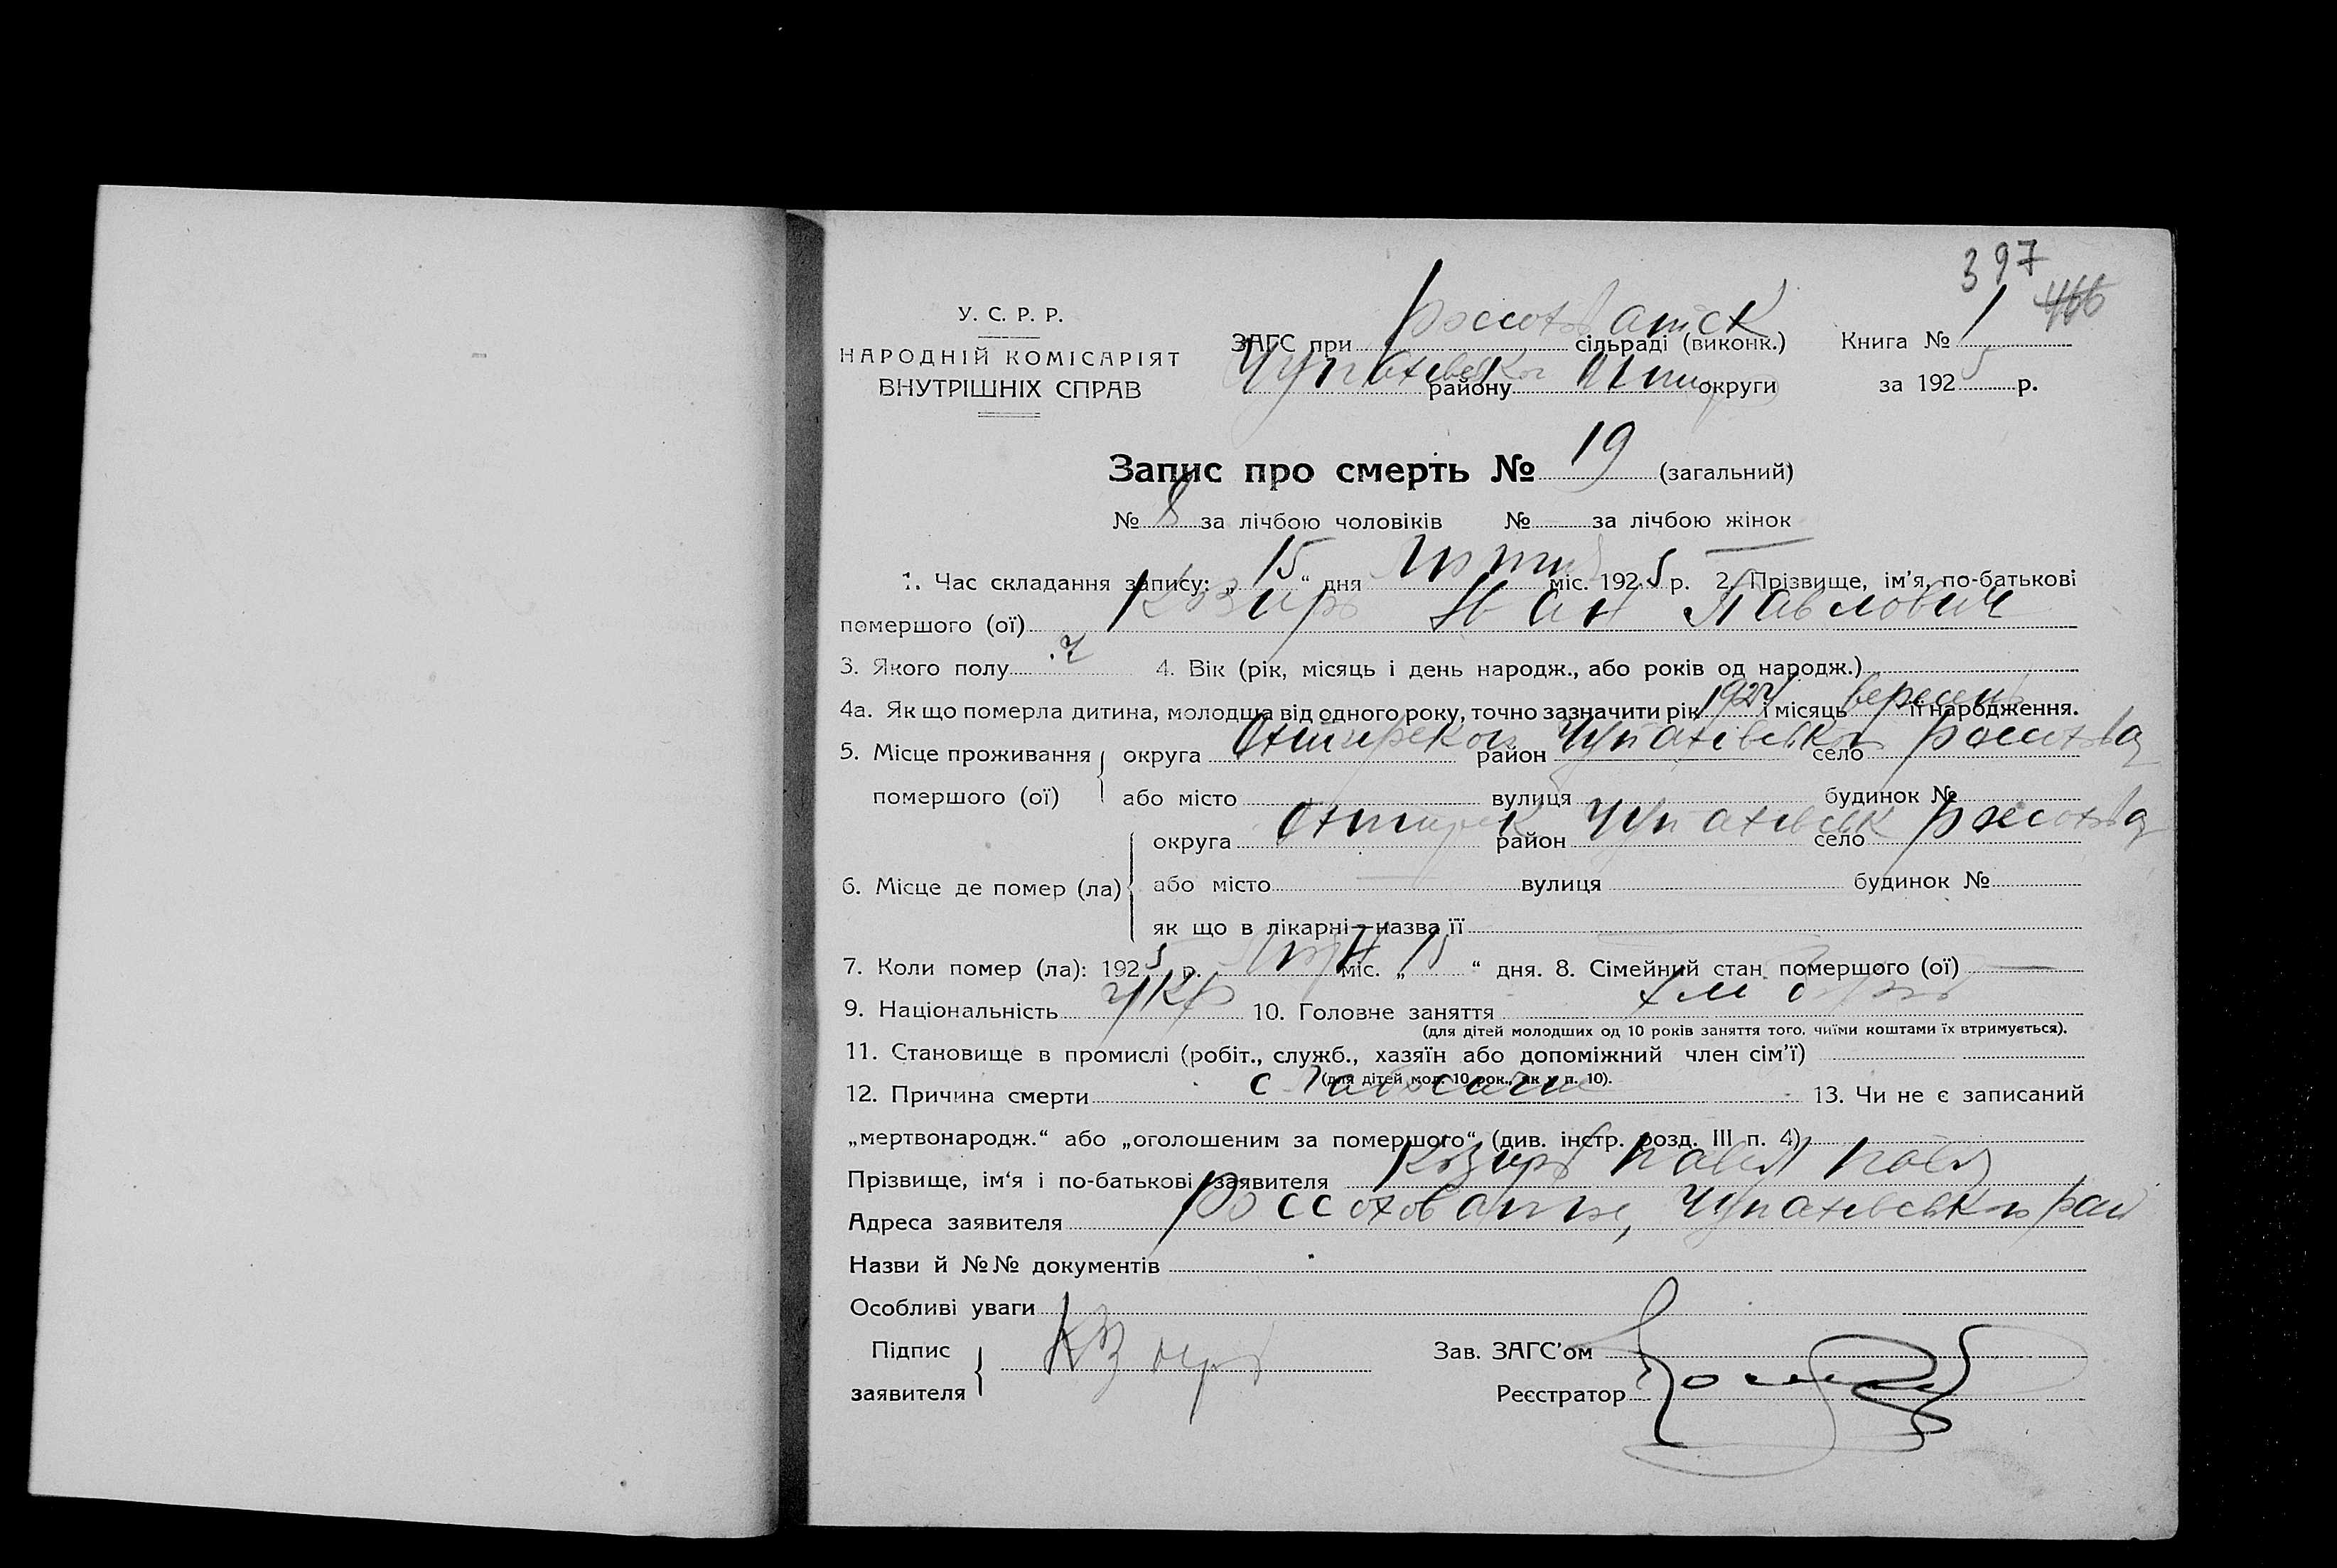 397
466
У. С. Р. Р.
НАРОДНІЙ КОМІСАРІЯТ
ВНУТРІШНІХ СПРАВ
ЗАГС при сільраді (виконк.) Книга № 1
району округи за 1925 р.
Запис про смерть № 19 (загальний)
№ 8 за лічбою чоловіків № — за лічбою жінок
1. Час складання запису: „15“ дня міс. 1925 р. 2. Прізвище, ім’я, по-батькові
помершого (ої) Козирь Иван Павлович
3. Якого полу ч 4. Вік (рік, місяць і день народж., або років од народж.)
4а. Як що померла дитина, молодша від одного року, точно зазначити рік 1924 і місяць вересень її народження.
5. Місце проживання округа район село
помершого (ої) або місто вулиця будинок №
округа Охтирськ район Чупахівськ село
6. Місце де помер (ла) або місто вулиця будинок №
як що в лікарні—назва її
7. Коли помер (ла): 1925 р. міс. „15“ дня. 8. Сімейний стан помершого (ої) —
9. Національність укр 10. Головне заняття хлібороб
(для дітей молодших од 10 років заняття того, чиїми коштами їх втримується).
11. Становище в промислі (робіт., служб., хазяїн або допоміжний член сім’ї)
(для дітей мол. 10 рок., як у п. 10).
12. Причина смерти 13. Чи не є записаний
„мертвонародж.“ або „оголошеним за помершого“ (див. інстр. розд. III п. 4)
Прізвище, ім‘я і по-батькові заявителя Козирь Павел Павл
Адреса заявителя Чупахівськ рай
Назви й №№ документів
Особливі уваги
Підпис
заявителя Козирь
Зав. ЗАГС’ом
Реєстратор